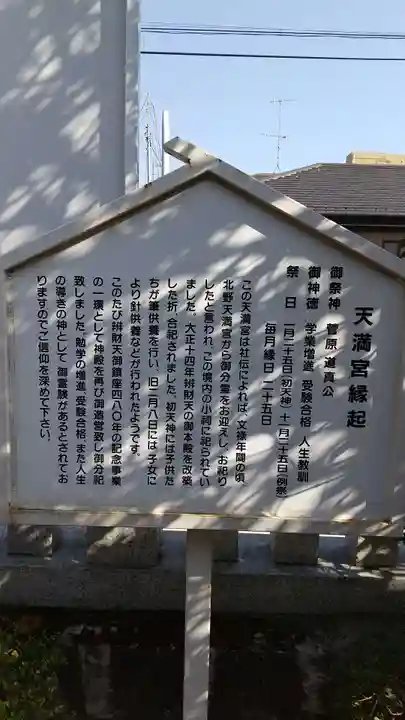 天満宮縁起
御祭神 菅原道真公
御神徳 学業増進 受験合格 人生教訓
祭日 一月二十五日(初天神)十一月二十五日(例祭)
毎月縁日 二十五日
この天満宮は社伝によれば、文禄年間の頃、
北野天満宮から御分霊をお迎えし、お祀り
したと言われ、この境内の小祠に祀られてい
ました。大正十四年辨財天の御本殿を改築
した折、合祀されました。初天神には子供た
ちが筆供養を行い、旧二月八日には子女に
より針供養などが行われたようです。
このたび辨財天御鎮座四八〇年の記念事業
の一環として神殿を再び御造営致し御分祀
致しました。勉学の増進、受験合格、また人生
の導きの神として御霊験があるとされてお
りますのでご信仰を深めて下さい。